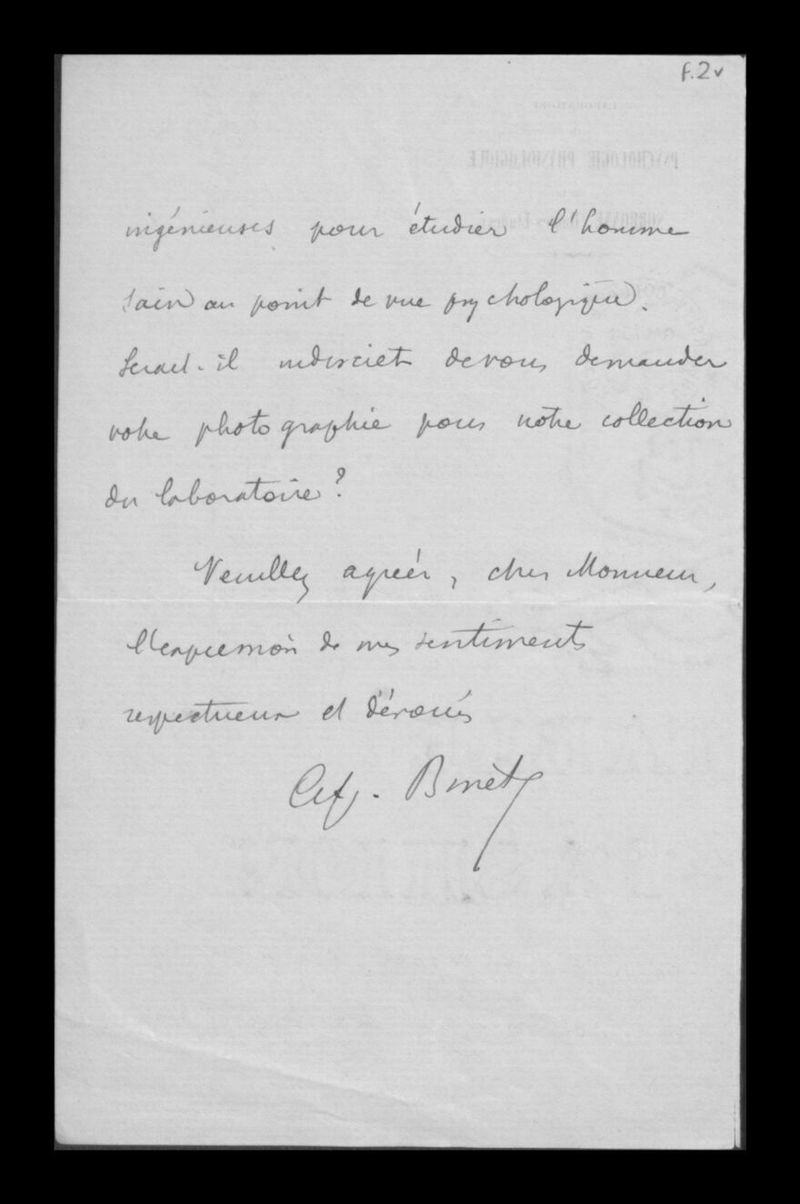 f.2v
ingénieuses pour étudier l'homme
sain au point de vue psychologique.
Serait-il indiscret de vous demander
votre photographie pour notre collection
du laboratoire ?
Veuillez agréer, cher Monsieur,
l'expression de mes sentiments
respectueux et dévoués
Alf. Binet